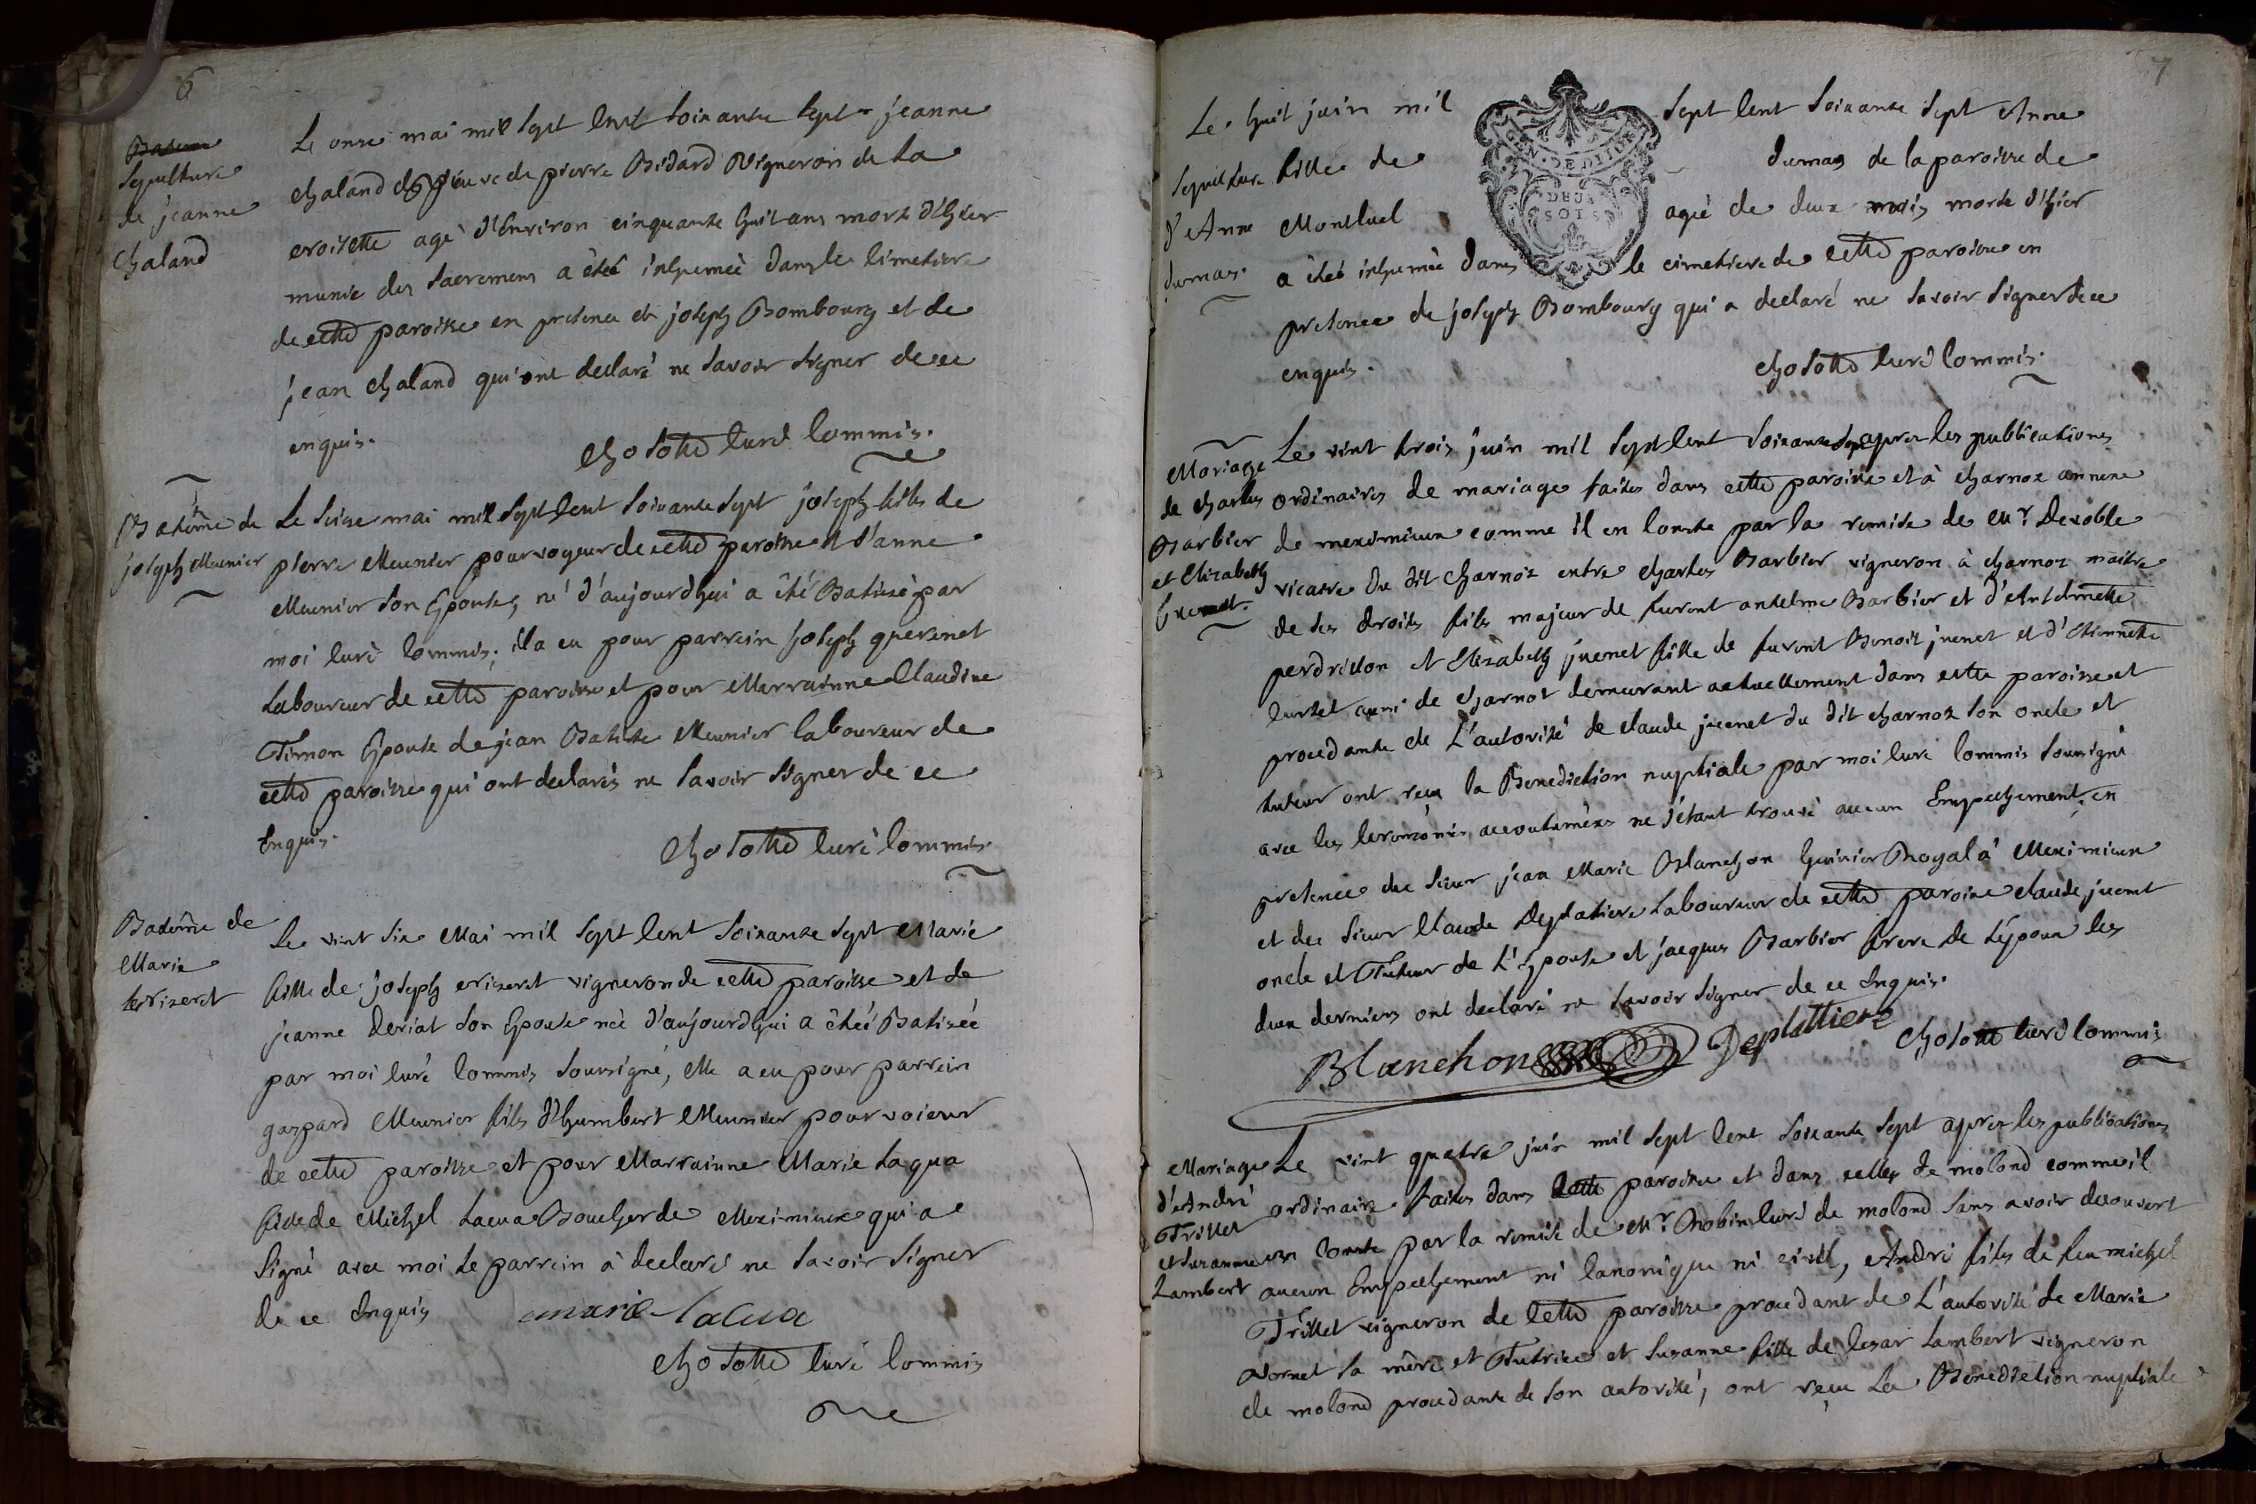 6
Sepulture
de jeanne
chaland
Le onze mai mil sept cent soixante sept jeanne
chaland veuve de pierre Bidard vigneron de la
croisette agé d'environ cinquante huit ans morte d'hier
munie des sacremens a étéé inhumeé dans le cimetiere
de cette paroisse en presence de joseph Bombourg et de
jean chaland qui ont declaré ne savoir signer de ce
enquis.
chosotte curé commis.
Batême de
joseph Meunier
Le seize mai mil sept cent soixante sept joseph fils de
pierre Meunier pourvoyeur de cette paroisse et d'anne
Meunier son Epouse, né d'aujourdhui a été Batisé par
moi curé commis; il a eu pour parrein joseph
Laboureur de cette paroisse et pour Marrainne Claudine
Timon Epouse de jean Batiste Meunier laboureur de
cette paroisse qui ont declarés ne savoir signer de ce
Enquis.
chosotte curé commis.
Batême de
Marie
crizeret
Le vint six Mai mil sept cent soixante sept Marie
fille de joseph crizeret vigneron de cette paroisse et de
jeanne Deriat son Epouse neé d'aujourdhui a étéé Batiseé
par moi curé commis soussigné, elle a eu pour parrein
gaspard Meunier fils d'humbert Meunier pourvoieur
de cette paroisse et pour Marrainne Marie Laqua
fille de Michel Lacua Boucher de Meximieux qui a
signé avec moi le parrein a declaré ne savoir signer
de ce Enquis marie lacua
chosotte curé commis
7
Sepulture
d'Anne
dumas.
GEN. DE DIJON
DEUX
SOLS
Le huit juin mil sept cent soixante sept Anne
fille de dumas de la paroisse de
Montluel ageé de deux mois morte d'hier
a étéé inhumeé dans le cimetiere de cette paroisse en
presence de joseph Bombourg qui a declaré ne savoir signer de ce
enquis.
chosotte curé commis.
Mariage
de charles
Barbier
et Elizabeth
juenet.
Le vint trois juin mil sept cent soixante sept apres les publications
ordinaires de mariage faites dans cette paroisse et à charnoz annexe
de meximieux comme il en conste par la remise de Mr. Devoble
vicaire du dit charnoz entre charles Barbier vigneron à charnoz maitre
de ses droits fils majeur de furent antelme Barbier et d'Antelmette
perdrillon et Elizabeth juenet fille de furent Benoit juenet et d'Etiennette
curtet aussi de charnoz demeurant actuellement dans cette paroisse et
procedante de L'autorité de claude juenet du dit charnoz son oncle et
tuteur ont reçu la Benediction nuptiale par moi curé commis soussigné
avec les ceremonies accoutumées ne s'étant trouvé aucun Empechement, en
presence du sieur jean Marie Blanchon huissier Royal à Meximieux
et du sieur Claude Deplatiere Laboureur de cette paroisse claude juenet
oncle et Tuteur de L'Epouse et jacques Barbier frere de L'époux les
deux derniers ont declaré ne savoir signer de ce Enquis.
Blanchon Deplattiere chosotte curé commis
Mariage
d'André
Trillet
et suzanne
Lambert
Le vint quatre juin mil sept cent soixante sept apres les publications
ordinaire faites dans cette paroisse et dans celles de molond comme il
en conste par la remise de Mr. Robin curé de molond sans avoir decouvert
aucun Empechement ni canonique ni civil, André fils de feu michel
Trillet vigneron de cette paroisse procedant de L'autorité de Marie
vornet sa mère et Tutrice et suzanne fille de cesar Lambert vigneron
de molond procedante de son autorité, ont reçu La Benediction nuptiale